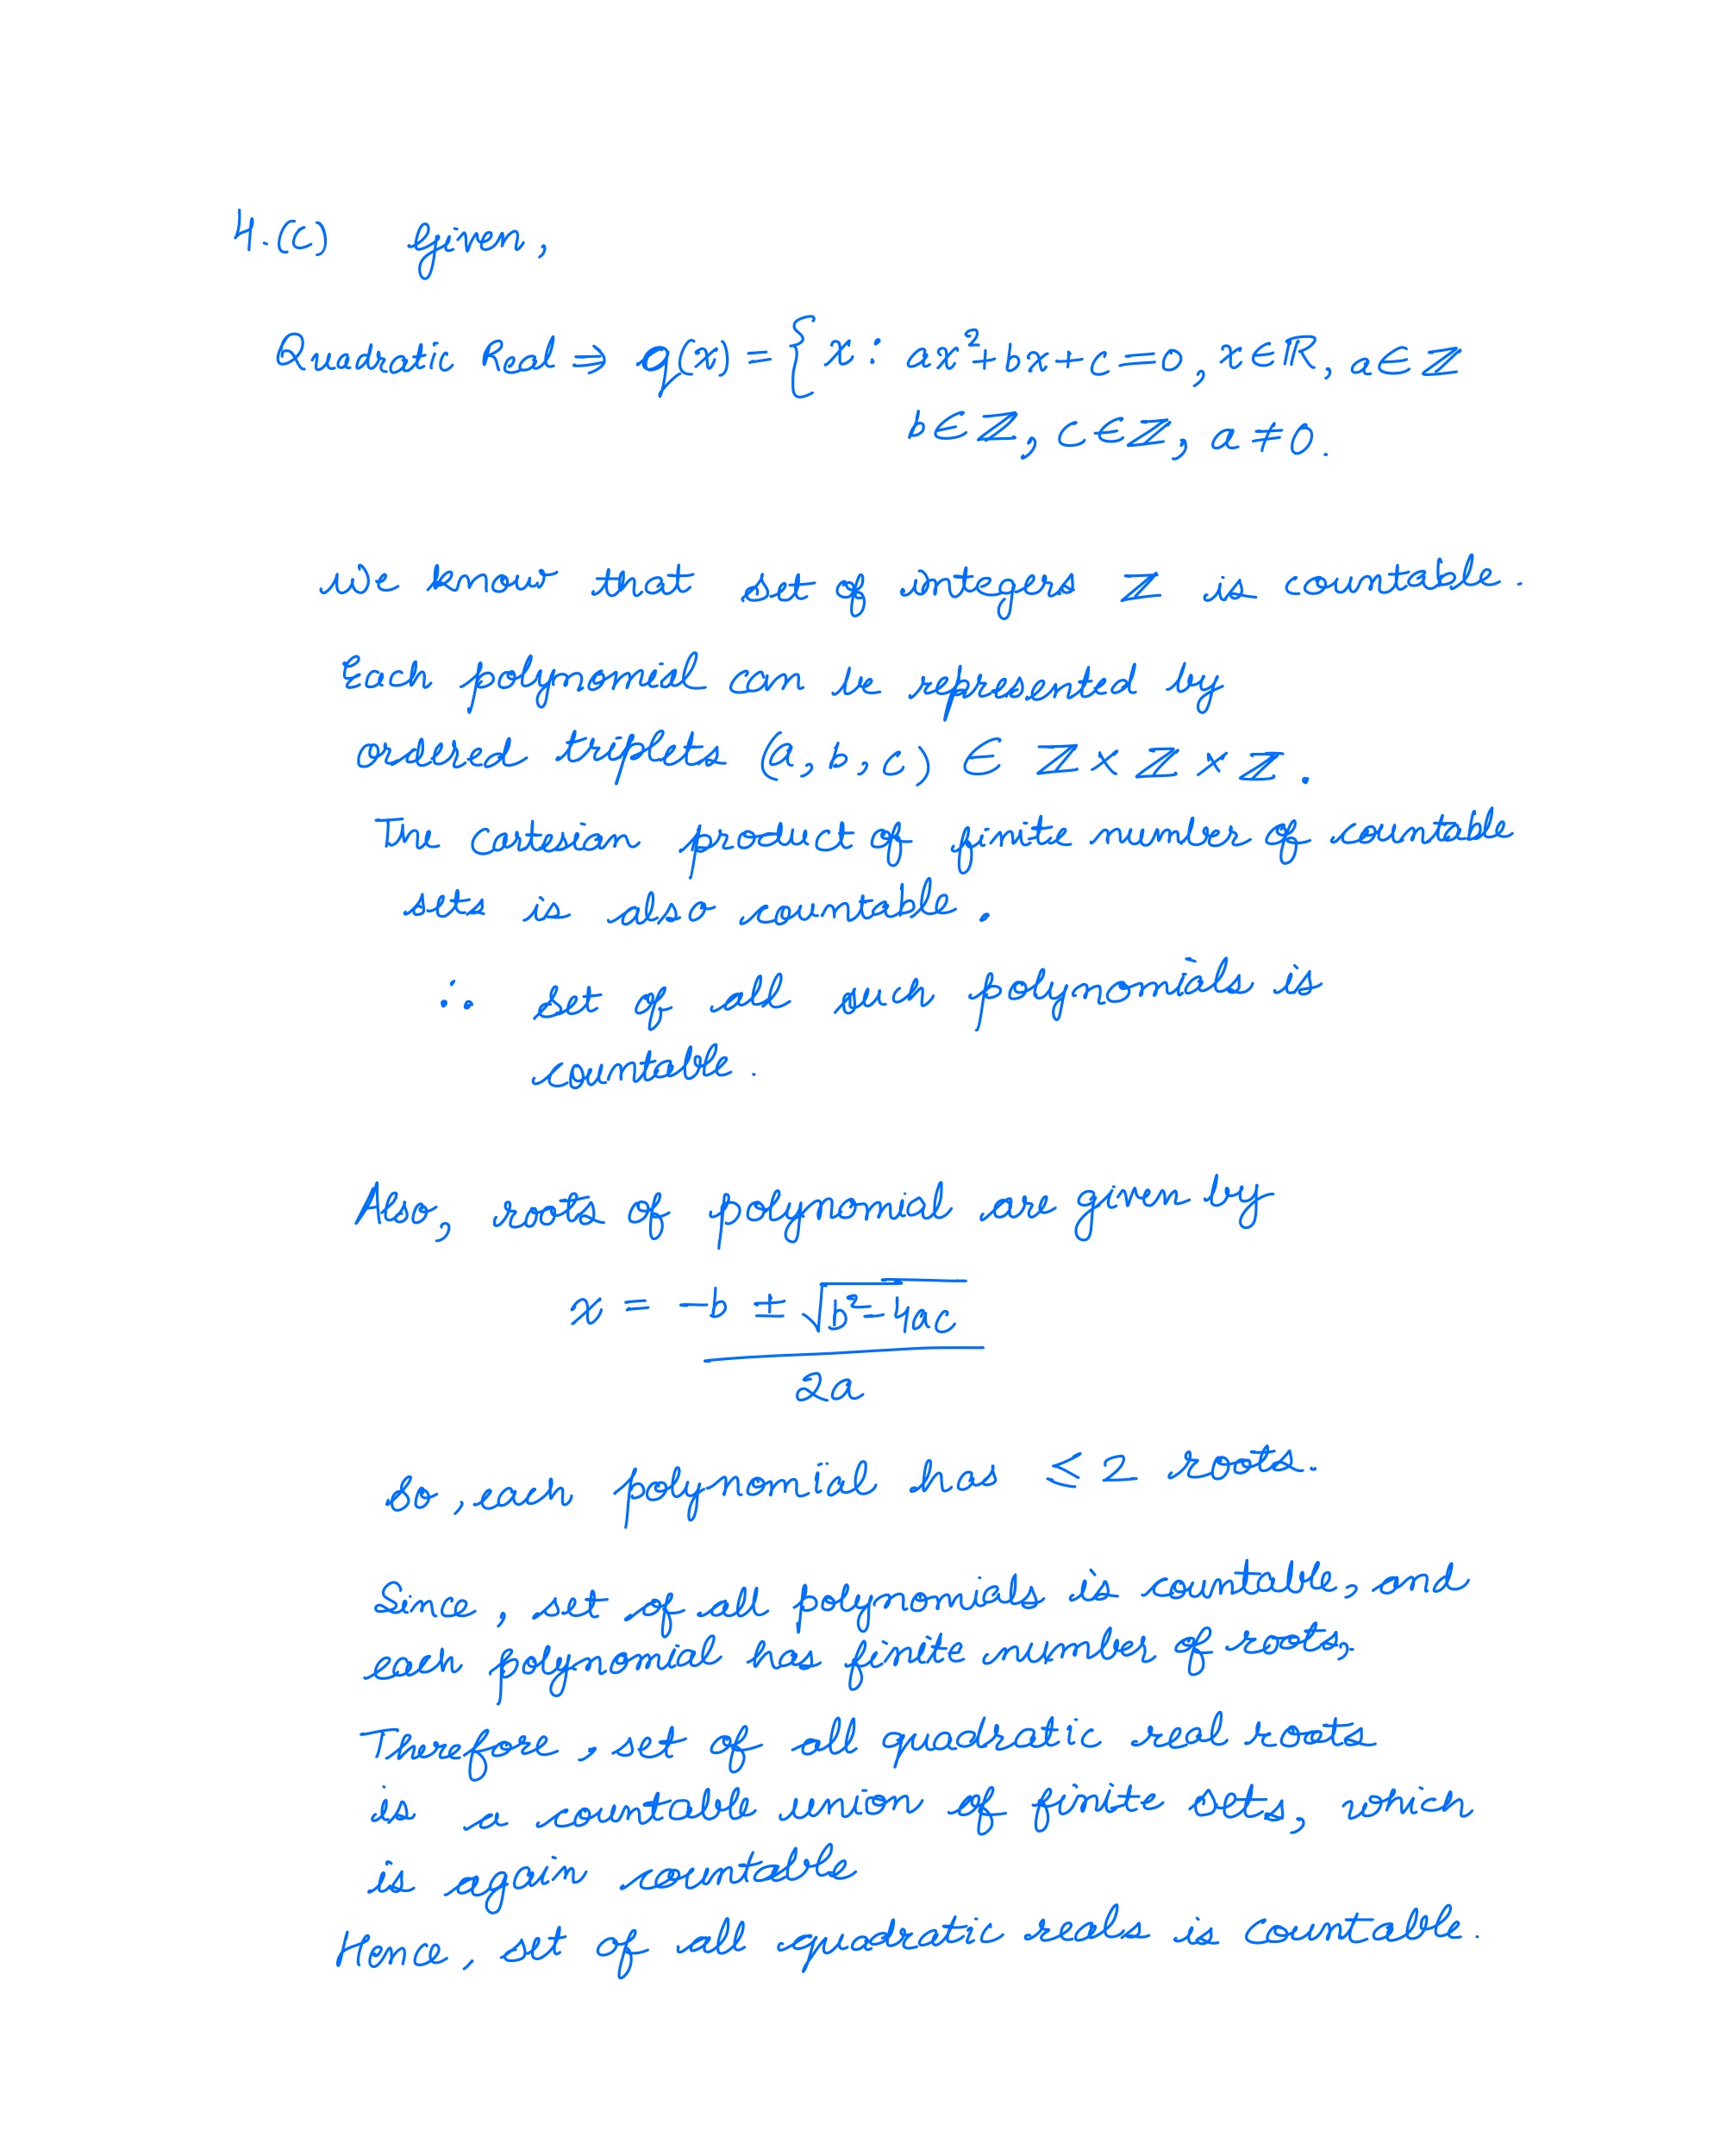 4.(c) Given,
Quadratic Real ⇒ q(x) = { x : ax²+bx+c=0, x∈ℝ, a∈ℤ
b∈ℤ, c∈ℤ, a≠0.
We know that set of integers ℤ is countable.
Each polynomial can be represented by
ordered triplets (a, b, c) ∈ ℤ × ℤ × ℤ.
The cartesian product of finite number of countable
sets is also countable.
∴ set of all such polynomials is
countable.
Also, roots of polynomial are given by
x = -b ± √b²-4ac
2a
So, each polynomial has ≤ 2 roots.
Since, set of all polynomials is countable, and
each polynomial has finite number of roots,
Therefore, set of all quadratic real roots
is a countable union of finite sets, which
is again countable
Hence, set of all quadratic reals is countable.